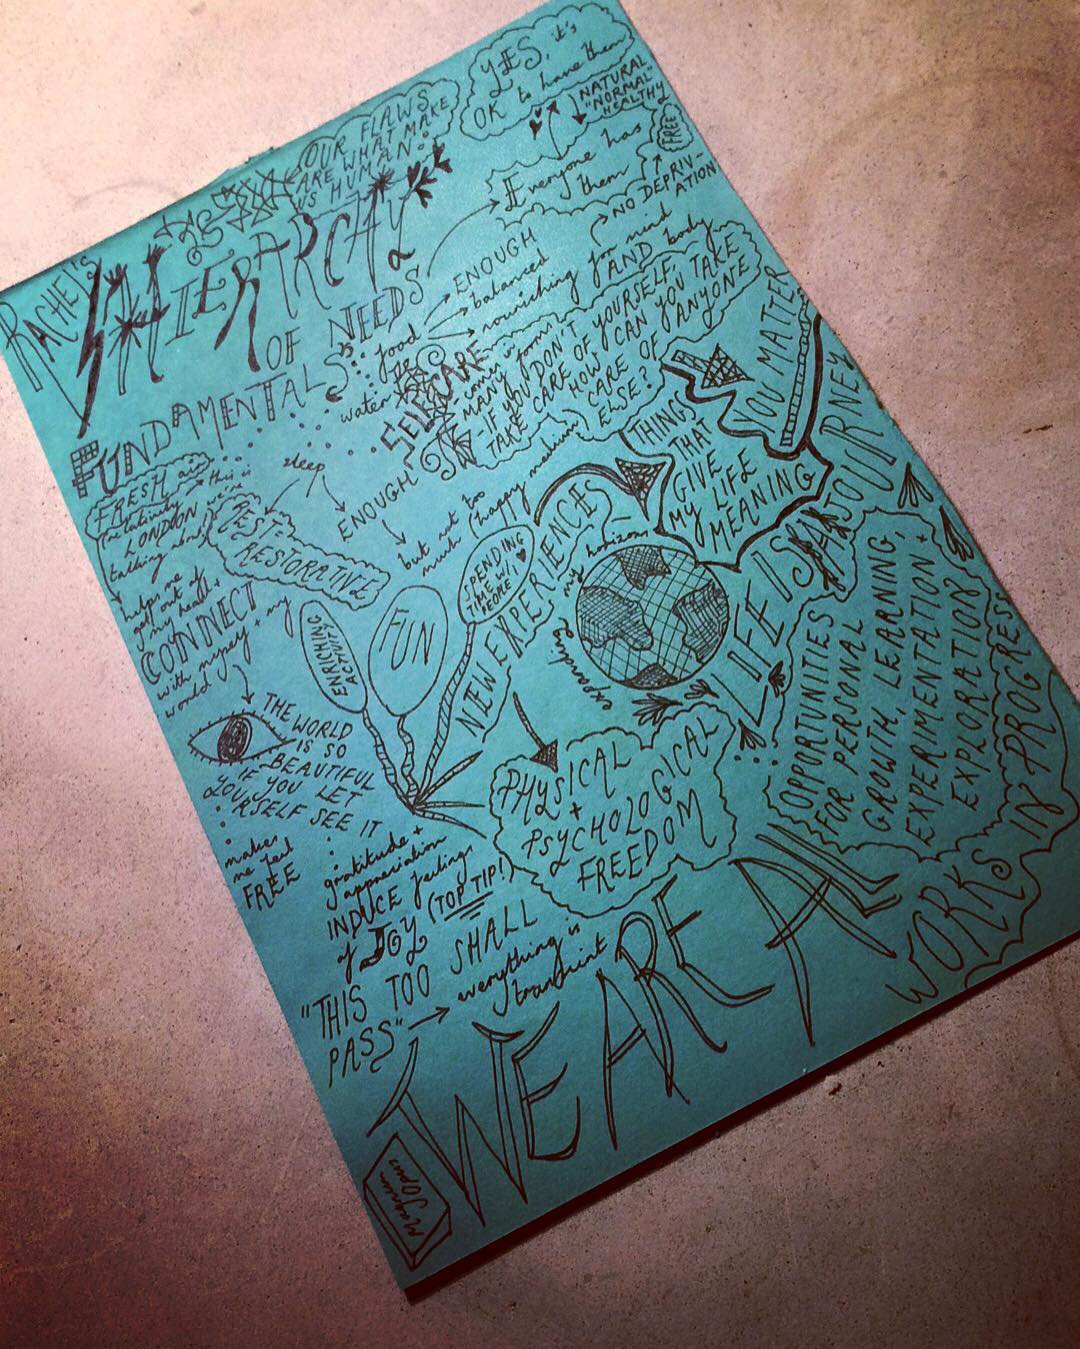 RACHEL'S
HIERARCHY
OF NEEDS
OUR FLAWS
ARE WHAT MAKE
US HUMAN
YES, it's
OK to have them
NATURAL
"NORMAL"
HEALTHY
FREE
Everyone has
them
NO DEPRIV-
ATION
FUNDAMENTALS
food
water
ENOUGH
balanced
nourishing for mind
AND body
SELF CARE
comes in
many forms
IF YOU DON'T
TAKE CARE OF YOURSELF,
HOW CAN YOU TAKE
CARE OF ANYONE
ELSE?
YOU MATTER
THINGS
THAT
GIVE
MY LIFE
MEANING
sleep
ENOUGH
but not too
much (happy medium)
REST-
RESTORATIVE
FRESH air
(relatively - this is
LONDON we're
talking about)
helps me
get out of
my head +
CONNECT
with myself + my
world
THE WORLD
IS SO
BEAUTIFUL
IF YOU LET
YOURSELF SEE IT
makes
me feel
FREE
ENRICHING
ACTIVITY
FUN
SPENDING
TIME W/
PEOPLE
NEW EXPERIENCES
expanding
my horizons
LIFE IS A JOURNEY
OPPORTUNITIES
FOR PERSONAL
GROWTH, LEARNING,
EXPERIMENTATION +
EXPLORATION
PHYSICAL
+
PSYCHOLOGICAL
FREEDOM
gratitude +
appreciation
INDUCE feelings
of JOY (TOP TIP!)
"THIS TOO SHALL
PASS"
everything is
transient
WE ARE ALL
WORKS IN PROGRESS